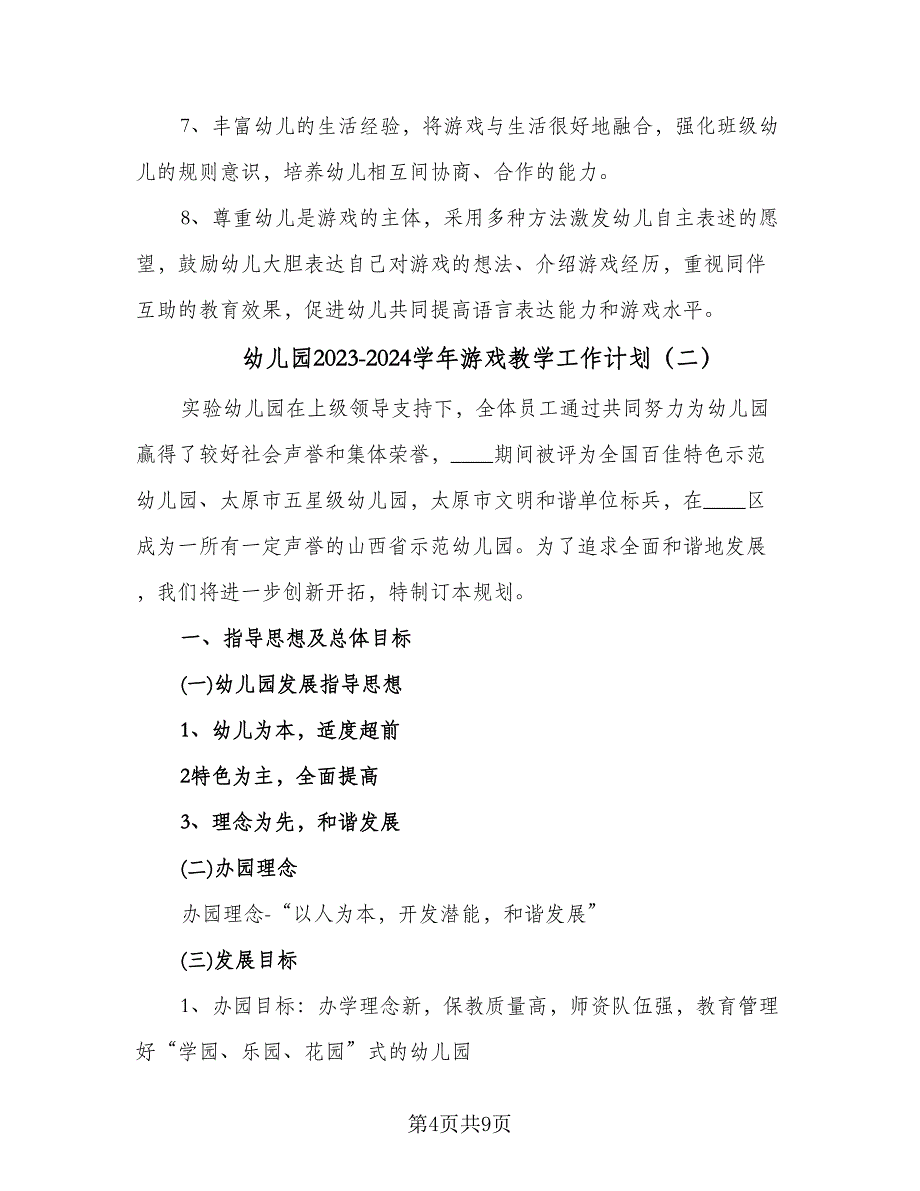 7、丰富幼儿的生活经验，将游戏与生活很好地融合，强化班级幼
儿的规则意识，培养幼儿相互间协商、合作的能力。
8、尊重幼儿是游戏的主体，采用多种方法激发幼儿自主表述的愿
望，鼓励幼儿大胆表达自己对游戏的想法、介绍游戏经历，重视同伴
互助的教育效果，促进幼儿共同提高语言表达能力和游戏水平。
幼儿园2023-2024学年游戏教学工作计划（二）
实验幼儿园在上级领导支持下，全体员工通过共同努力为幼儿园
赢得了较好社会声誉和集体荣誉，____期间被评为全国百佳特色示范
幼儿园、太原市五星级幼儿园，太原市文明和谐单位标兵，在____区
成为一所有一定声誉的山西省示范幼儿园。为了追求全面和谐地发展
，我们将进一步创新开拓，特制订本规划。
一、指导思想及总体目标
(一)幼儿园发展指导思想
1、幼儿为本，适度超前
2特色为主，全面提高
3、理念为先，和谐发展
(二)办园理念
办园理念-“以人为本，开发潜能，和谐发展”
(三)发展目标
1、办园目标：办学理念新，保教质量高，师资队伍强，教育管理
好“学园、乐园、花园”式的幼儿园
第4页共9页